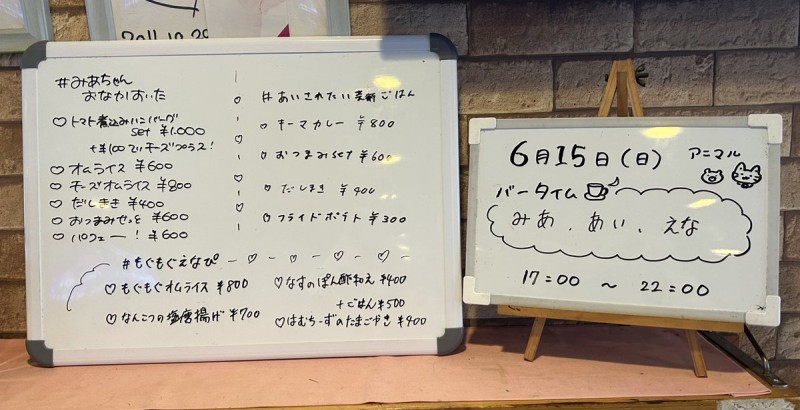 2011.10.29
#みあちゃん
おなかすいた
♡トマト煮込みハンバーグ
set ¥1.000
+¥100でチーズプラス!
♡オムライス ¥600
♡チーズオムライス ¥800
♡だしまき ¥400
♡おつまみせっと ¥600
♡パフェー! ¥600
#あいされたい芸術ごはん
キーマカレー ¥800
おつまみset ¥600
だしまき ¥400
フライドポテト ¥300
#もぐもぐえなぴ
♡もぐもぐオムライス ¥800
♡なんこつの塩唐揚げ ¥700
♡なすのぽん酢和え ¥400
+ごはん ¥500
♡はむちーずのたまごやき ¥400
6月15日(日)
アニマル
バータイム
みあ、あい、えな
17:00 ~ 22:00